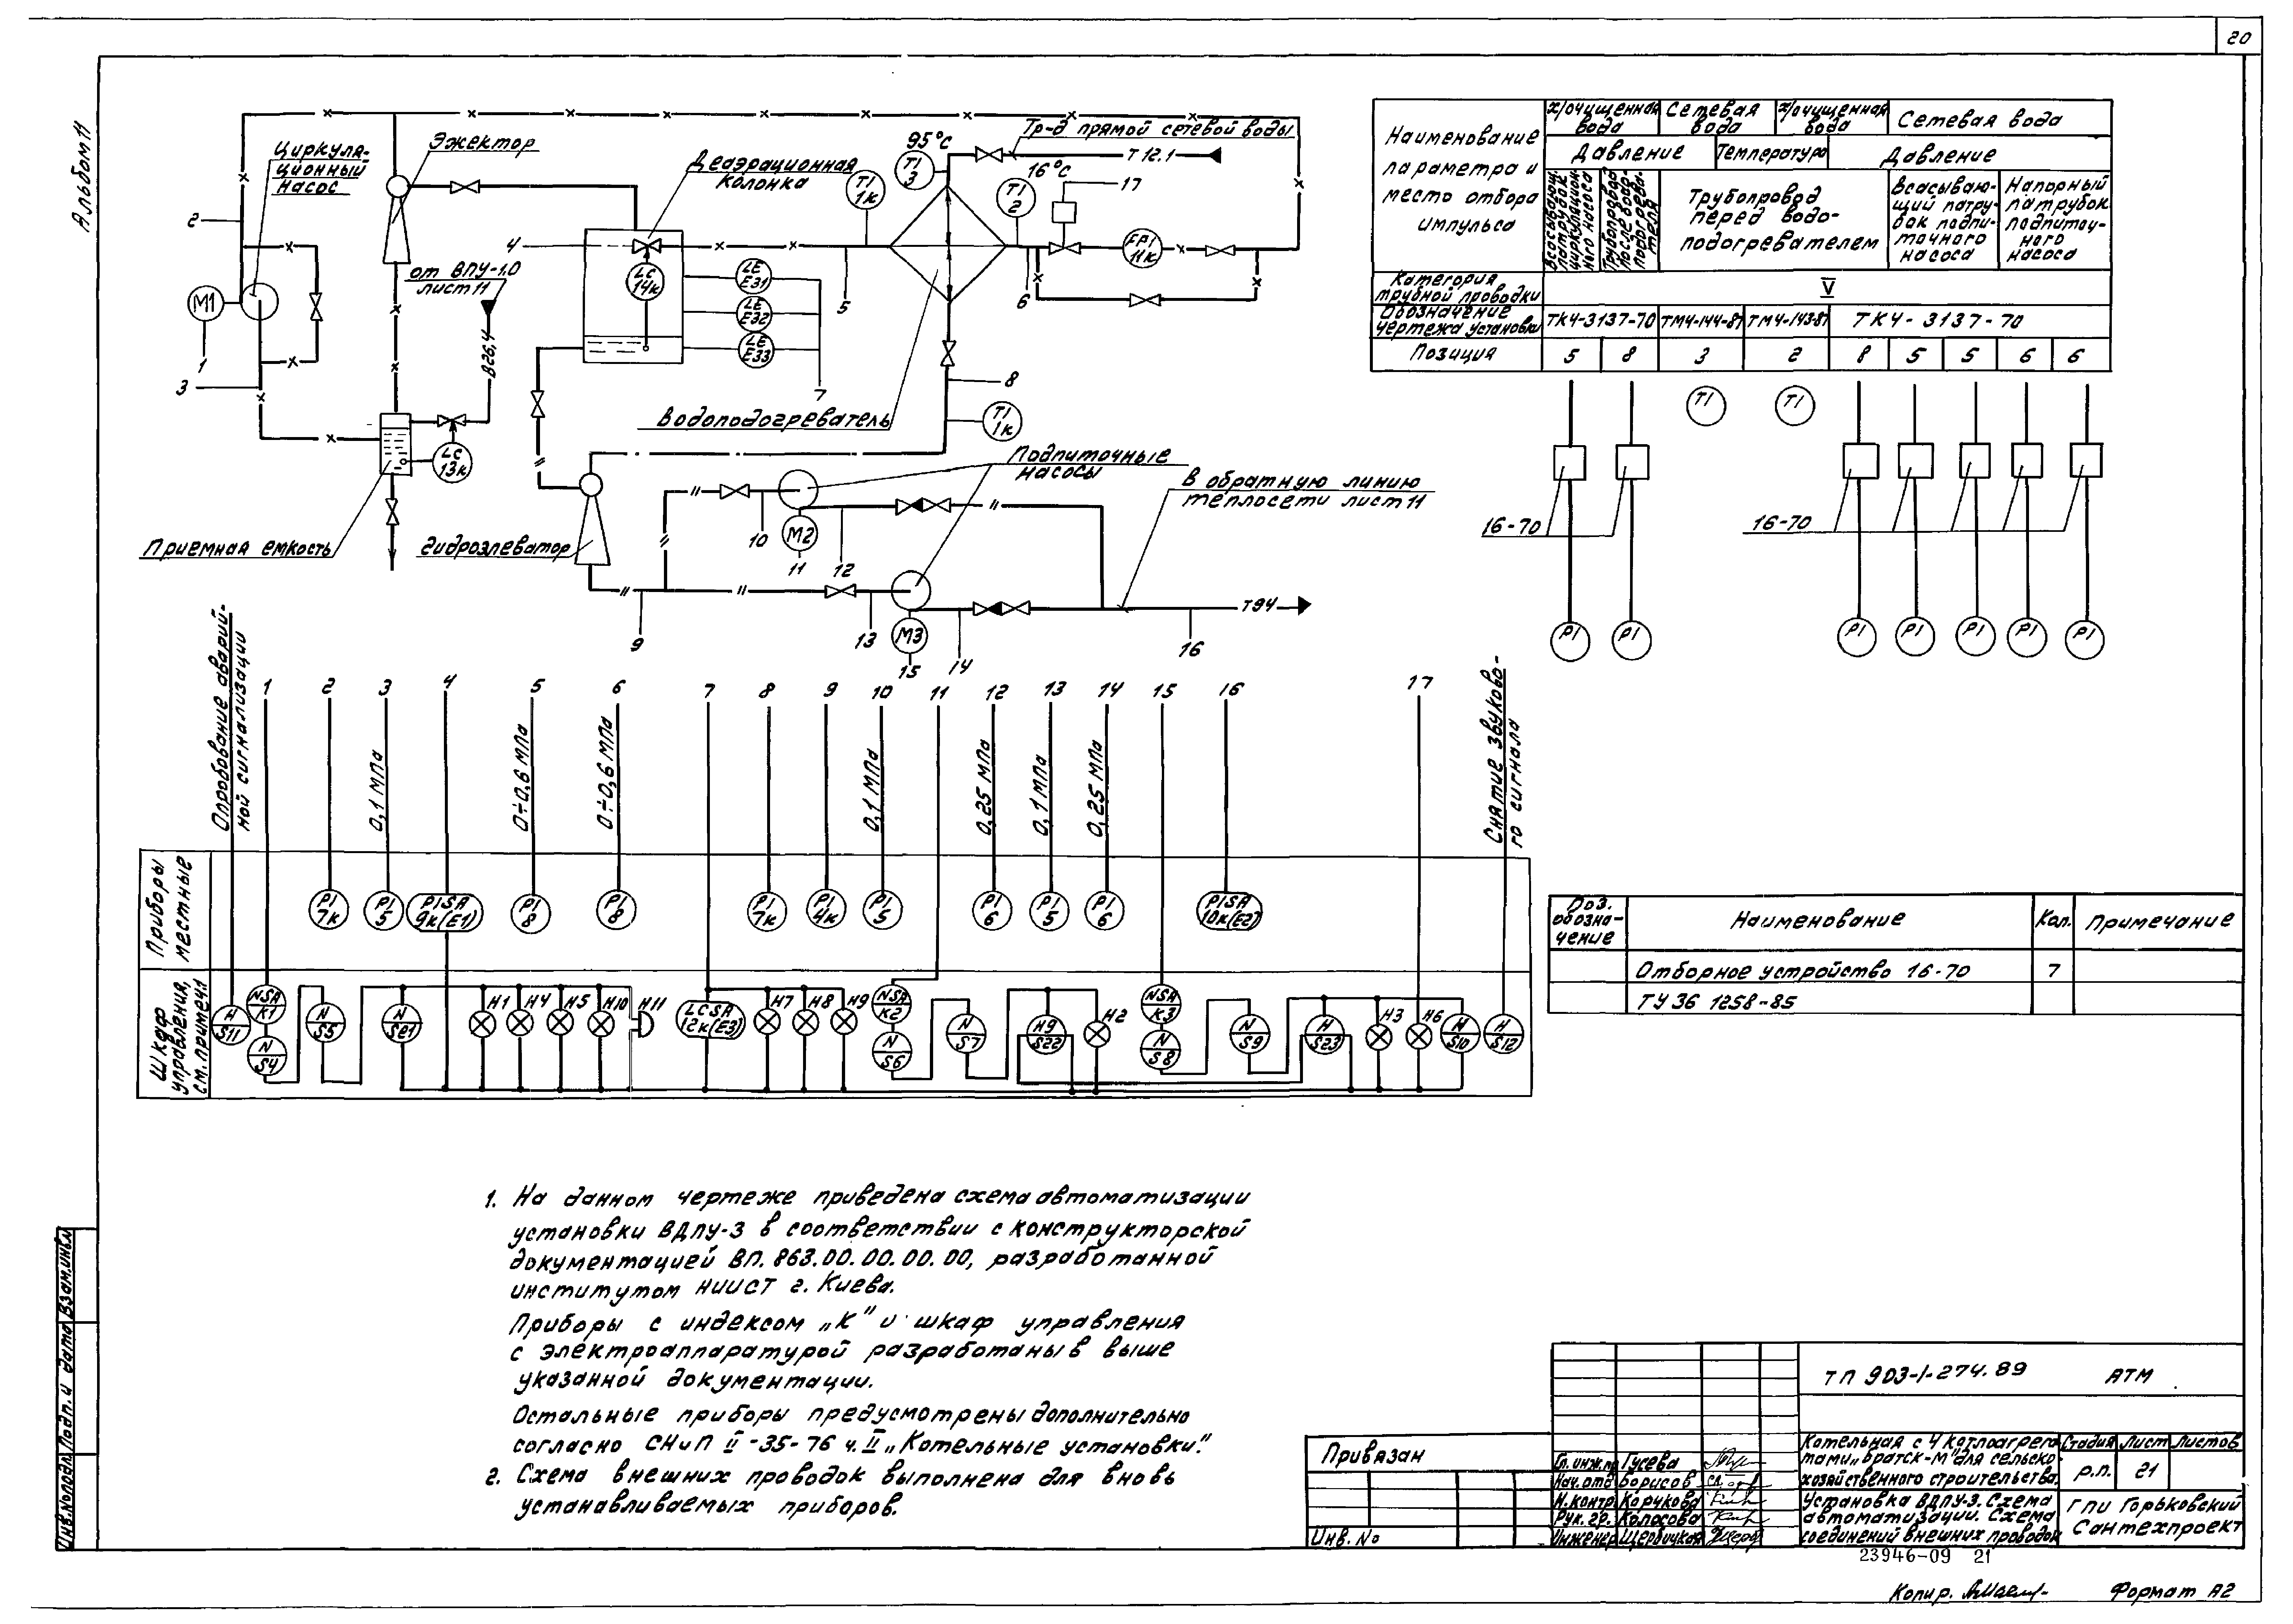 20
Альбом 11
Циркуля-
ционный
насос
Эжектор
Деаэрационная
колонка
95°С
TI
3
Тр-д прямой сетевой воды
Т 12.1
16°С
TI
2
17
TI
1к
FPI
11к
2
4
от ВПУ-1,0
лист 11
В26,4
LC
14к
LE
E31
LE
E32
LE
E33
5
6
7
8
M1
1
3
LC
13к
Водоподогреватель
TI
1к
Подпиточные
насосы
В обратную линию
теплосети лист 11
Приемная емкость
Гидроэлеватор
10
M2
11
12
9
13
M3
15
14
16
Т94
Наименование
параметра и
место отбора
импульса
х/очищенная
вода
Сетевая
вода
х/очищенная
вода
Сетевая вода
Давление
Температура
Давление
Всасывающ.
патрубок
циркуляцион-
ного насоса
Трубопровод
после водо-
подогрева-
теля
Трубопровод
перед водо-
подогревателем
Всасываю-
щий патру-
бок подпи-
точного
насоса
Напорный
патрубок
подпиточ-
ного
насоса
Категория
трубной проводки
V
Обозначение
чертежа установки
ТК4-3137-70
ТМ4-144-87
ТМ4-143-87
ТК4-3137-70
Позиция
5
8
3
2
8
5
5
6
6
TI
TI
16-70
16-70
PI
PI
PI
PI
PI
PI
PI
Опробование аварий-
ной сигнализации
1
2
3
4
5
6
7
8
9
10
11
12
13
14
15
16
17
Снятие звуково-
го сигнала
0,1 МПа
0÷0,6 МПа
0÷0,6 МПа
0,1 МПа
0,25 МПа
0,1 МПа
0,25 МПа
Приборы
местные
PI
7к
PI
5
PISA
9к(E1)
PI
8
PI
8
PI
7к
PI
4к
PI
5
PI
6
PI
5
PI
6
PISA
10к(E2)
Шкаф
управления,
см. примеч.1
H
S11
NSA
K1
N
S4
N
S5
N
Se1
H1
H4
H5
H10
H11
LCSA
12к(E3)
H7
H8
H9
NSA
K2
N
S6
N
S7
H9
S22
H2
NSA
K3
N
S8
N
S9
H
S23
H3
H6
H
S10
H
S12
Поз.
обозна-
чение
Наименование
Кол.
Примечание
Отборное устройство 16-70
7
ТУ 36 1258-85
1. На данном чертеже приведена схема автоматизации
установки ВДПУ-3 в соответствии с конструкторской
документацией ВП. 863.00.00.00.00, разработанной
институтом НИИСТ г. Киева.
Приборы с индексом „К" и шкаф управления
с электроаппаратурой разработаны в выше
указанной документации.
Остальные приборы предусмотрены дополнительно
согласно СНиП II-35-76 ч. II „Котельные установки".
2. Схема внешних проводок выполнена для вновь
устанавливаемых приборов.
Инв.№подл.
Подп. и дата
Взам.инв.№
Привязан
Инв. №
Гл. инж.пр
Гусева
Нач. отд
Борисов
Н.контр.
Корчкова
Рук. гр.
Колосова
Инженер
Щербицкая
ТП 903-1-274.89
АТМ
Котельная с 4 котлоагрега-
тами „Братск-М" для сельско-
хозяйственного строительства.
Стадия
Лист
Листов
р.п.
21
Установка ВДПУ-3. Схема
автоматизации. Схема
соединений внешних проводок
ГПИ Горьковский
Сантехпроект
23946-09 21
Копир.
Формат А2